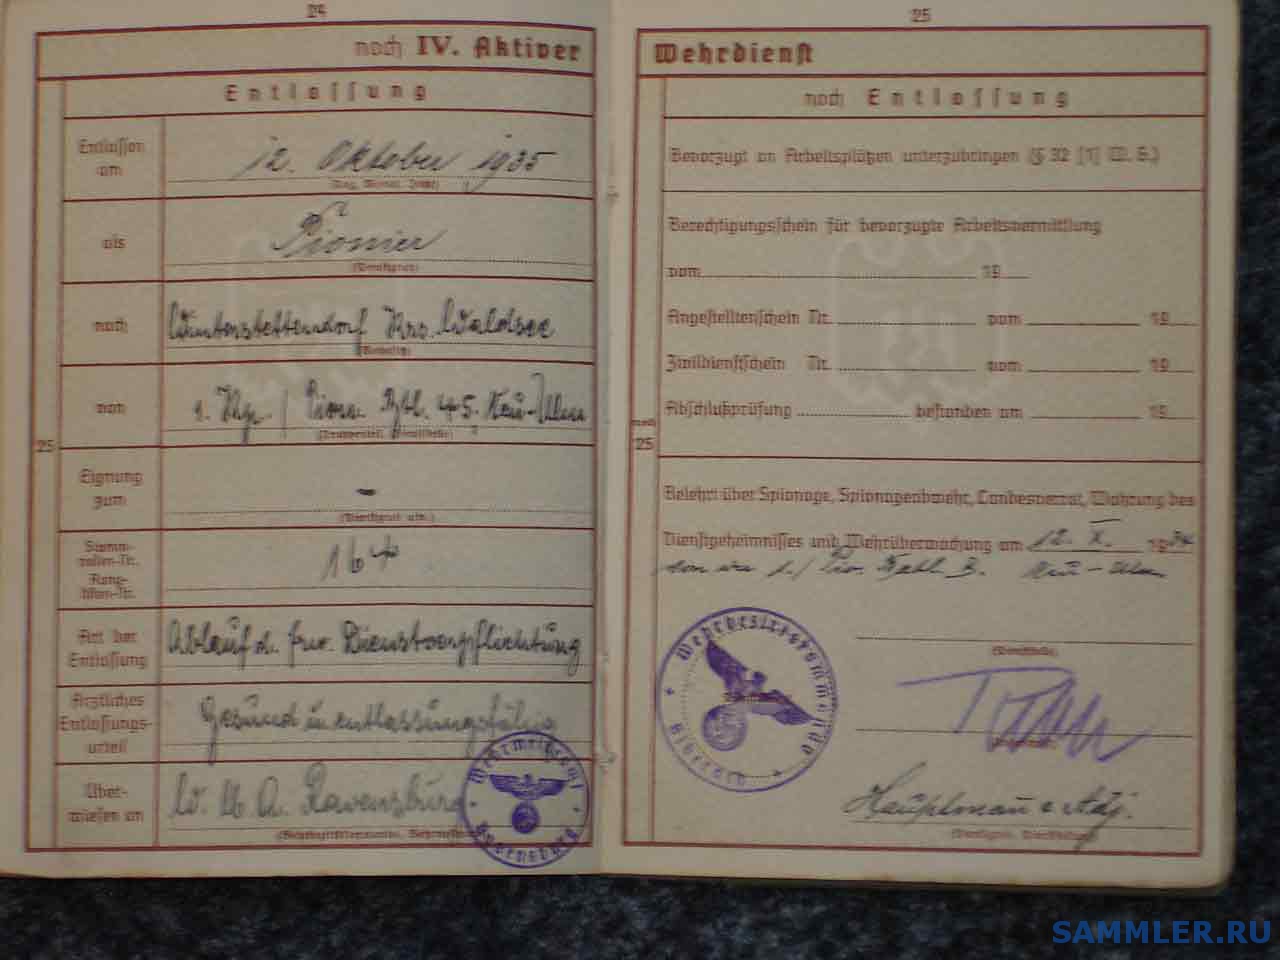 24
noch IV. Aktiver
Entlassung
Entlassen am
12. Oktober 1935
(Tag, Monat, Jahr)
als
Pionier
(Dienstgrad)
nach
Winterstettendorf Krs. Waldsee
von
1. Kp. / Pion. Btl. 45. Neu-Ulm
(Truppenteil, Dienststelle)
25
Eignung zum
–
(Dienstgrad usw.)
Stamm-
rollen-Nr.
Rang-
listen-Nr.
164
Art der Entlassung
Ablauf d. frw. Dienstverpflichtung
Ärztliches
Entlassungs-
urteil
Gesund u. entlassungsfähig
Über-
wiesen an
W. B. A. Ravensburg
Wehrmeldeamt
Ravensburg
25
Wehrdienst
noch Entlassung
Bevorzugt an Arbeitsplätzen unterzubringen (§ 32 [1] W. G.)
Berechtigungsschein für bevorzugte Arbeitsvermittlung
vom 19
Angestelltenschein Nr. vom 19
Zivildienstschein Nr. vom 19
Abschlußprüfung bestanden am 19
noch
25
Belehrt über Spionage, Spionageabwehr, Landesverrat, Wahrung des
Dienstgeheimnisses und Wehrüberwachung am 12. X. 19
Neu-Ulm
(Dienststelle)
Wehrbezirkskommando
Hauptmann u. Adj.
SAMMLER.RU